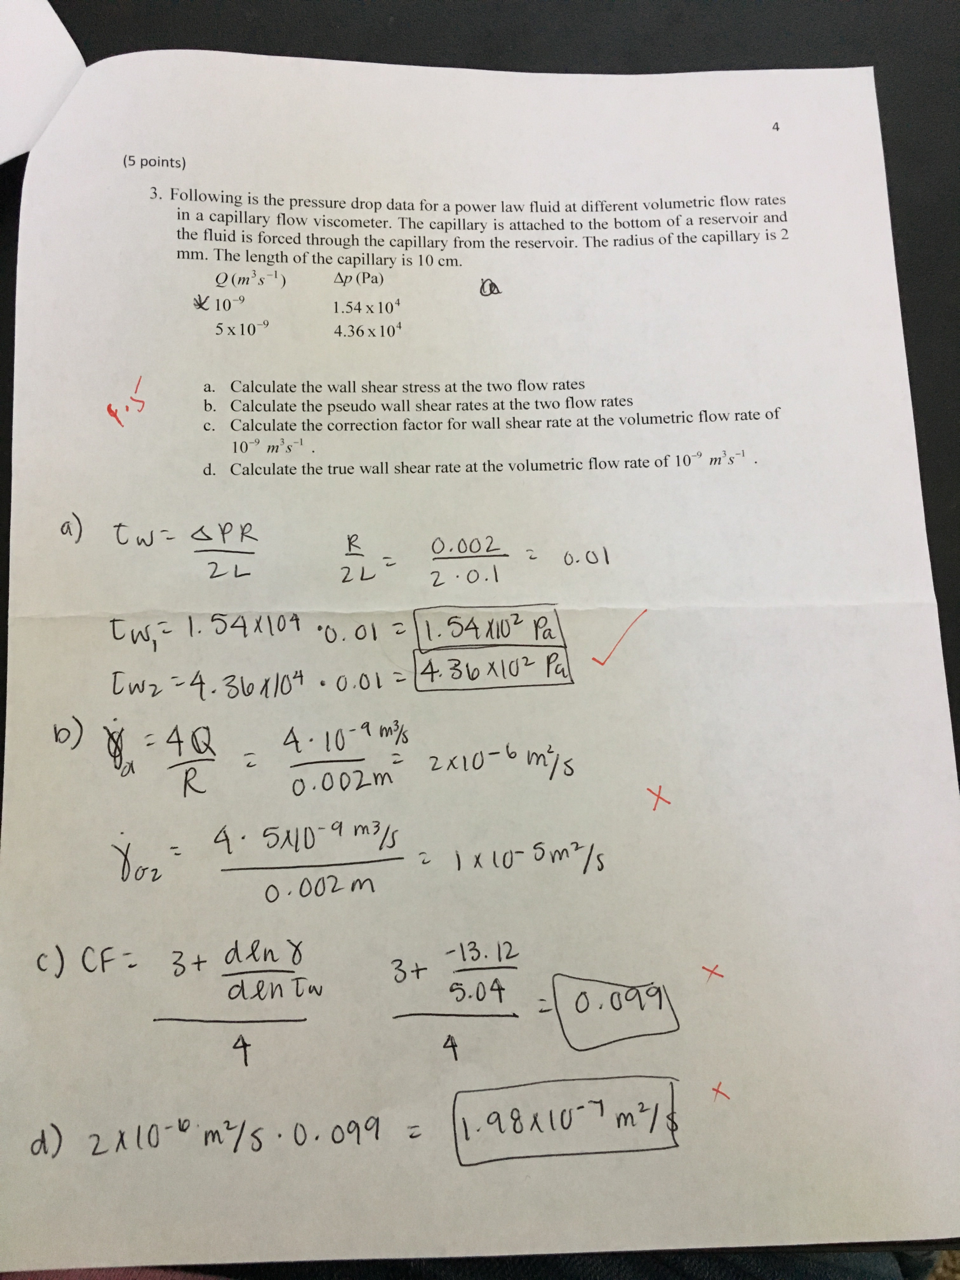 4
(5 points)
3. Following is the pressure drop data for a power law fluid at different volumetric flow rates
in a capillary flow viscometer. The capillary is attached to the bottom of a reservoir and
the fluid is forced through the capillary from the reservoir. The radius of the capillary is 2
mm. The length of the capillary is 10 cm.
Q (m³s⁻¹) Δp (Pa)
10⁻⁹ 1.54 x 10⁴
5 x 10⁻⁹ 4.36 x 10⁴
a. Calculate the wall shear stress at the two flow rates
b. Calculate the pseudo wall shear rates at the two flow rates
c. Calculate the correction factor for wall shear rate at the volumetric flow rate of
10⁻⁹ m³s⁻¹ .
d. Calculate the true wall shear rate at the volumetric flow rate of 10⁻⁹ m³s⁻¹ .
a) τw = ΔPR / 2L R / 2L = 0.002 / 2·0.1 = 0.01
τw₁ = 1.54x10⁴ · 0.01 = 1.54x10² Pa
τw₂ = 4.36x10⁴ · 0.01 = 4.36x10² Pa
b) γ̇a = 4Q / R = 4·10⁻⁹ m³/s / 0.002m = 2x10⁻⁶ m²/s
γ̇a₂ = 4·5x10⁻⁹ m³/s / 0.002m = 1x10⁻⁵ m²/s
c) CF = 3 + dlnγ / dlnτw / 4 3 + -13.12 / 5.04 / 4 = 0.099
d) 2x10⁻⁶ m²/s · 0.099 = 1.98x10⁻⁷ m²/s